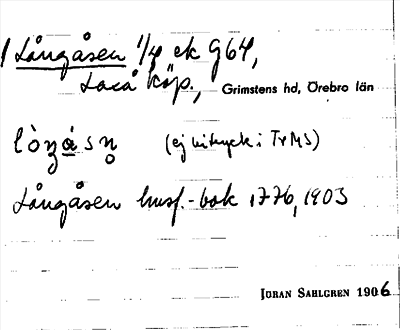 Långåsen 1/4 ek G64,
Laxå köp., Grimstens hd, Örebro län
lòŋåsn̥ (ej uttryck i TrMS)
Långåsen husf.-bok 1776, 1903
JÖRAN SAHLGREN 1906